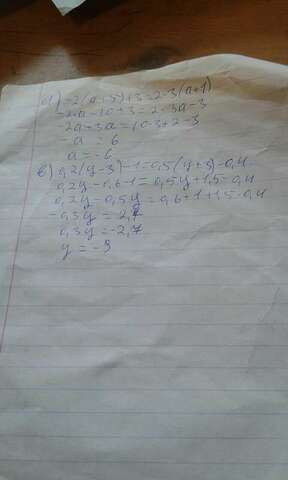 а) -2(а+5)+3=2-3(а+1)
-2а-10+3=2-3а-3
-2а+3а=10-3+2-3
-а=6
а=-6
в) 0,2(у-3)-1=0,5(у+3)-0,4
0,2у-0,6-1=0,5у+1,5-0,4
0,2у-0,5у=0,6+1+1,5-0,4
-0,3у=2,7
0,3у=-2,7
у=-9